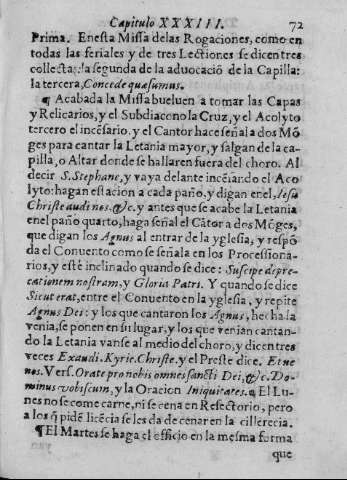 Capitulo XXXIII. 72
Prima. En esta Missa delas Rogaciones, como en
todas las feriales y de tres Lectiones se dicen tres
collectas: la segunda de la advocació de la Capilla:
la tercera, Concede quæsumus.
¶ Acabada la Missa buelven a tomar las Capas
y Relicarios, y el Subdiacono la Cruz, y el Acolyto
tercero el incésario. y el Cantor hace señal a dos Mõ
ges para cantar la Letania mayor, y salgan de la ca-
pilla, o Altar donde se hallaren fuera del choro. Al
decir S. Stephane, y vaya delante incésando el Aco
lyto: hagan estacion a cada paño, y digan en el, Jesu
Christe audi nos. &c. y antes que se acabe la Letania
en el paño quarto, haga señal el Cãtor a dos Mõges,
que digan los Agnus al entrar de la yglesia, y respõ
da el Convento como se señala en los Processiona-
rios, y esté inclinado quando se dice: Suscipe depre-
cationem nostram, y Gloria Patri. Y quando se dice
Sicut erat, entre el Convento en la yglesia, y repite
Agnus Dei: y los que cantaron los Agnus, hecha la
venia, se ponen en su lugar, y los que venian cantan-
do la Letania vanse al medio del choro, y dicen tres
veces Exaudi. Kyrie. Christe. y el Preste dice. Et ne
nos. Vers. Orate pro nobis omnes sancti Dei, &c. Do-
minus vobiscum, y la Oracion Iniquitates. ¶ El Lu-
nes no se come carne, ni se cena en Refectorio, pero
a los q̃ pidē licécia se les da de cenar en la cillerecia.
¶ El Martes se haga el officio en la mesma forma
que